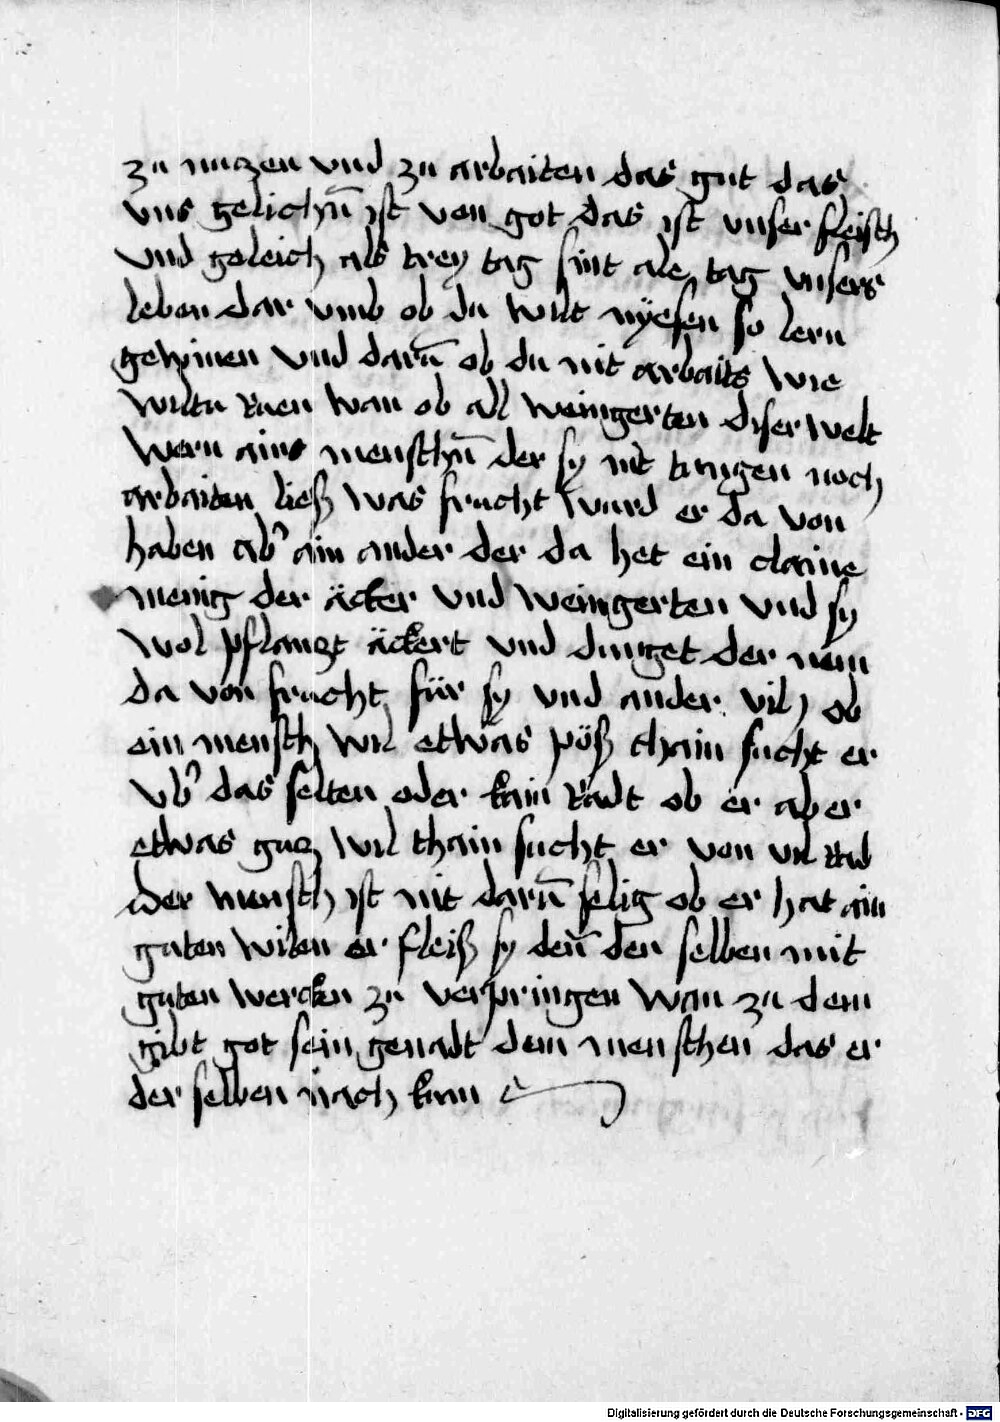 zu nuczen vnd zu arbaiten das gut das
vns gelichñ ist von got das ist vnser fleisch
vnd geleich als trey tag sint ale tag vnsers
leben dar vmb ob du wilt nyësen so lern
gewinen vnd darũ ob du nit arbaits wie
wiltu Ruen wan ob all weingerten diser welt
wern ains menschñ der sy nit tungen noch
arbaiten ließ was frucht wurd er da von
haben ab' ain ander der da het ein claine
menig der äcker vnd weingerten vnd sy
wol pflanczt äckert vnd dunget der nem
da von frucht für sy vnd ander vil ob
ein mensch wil etwas pöß thain sucht er
vb' das selten oder kain Radt ob er aber
etwas gucz wil thain sucht er von vil Rad
der mensch ist nit darũ selig ob er hat ain
guten wilen er fleiß sy deñ den selben mit
guten wercken zu verpringen wan zu dem
gibt got sein genadt dem menschen das er
der selben nach kum
Digitalisierung gefördert durch die Deutsche Forschungsgemeinschaft - DFG